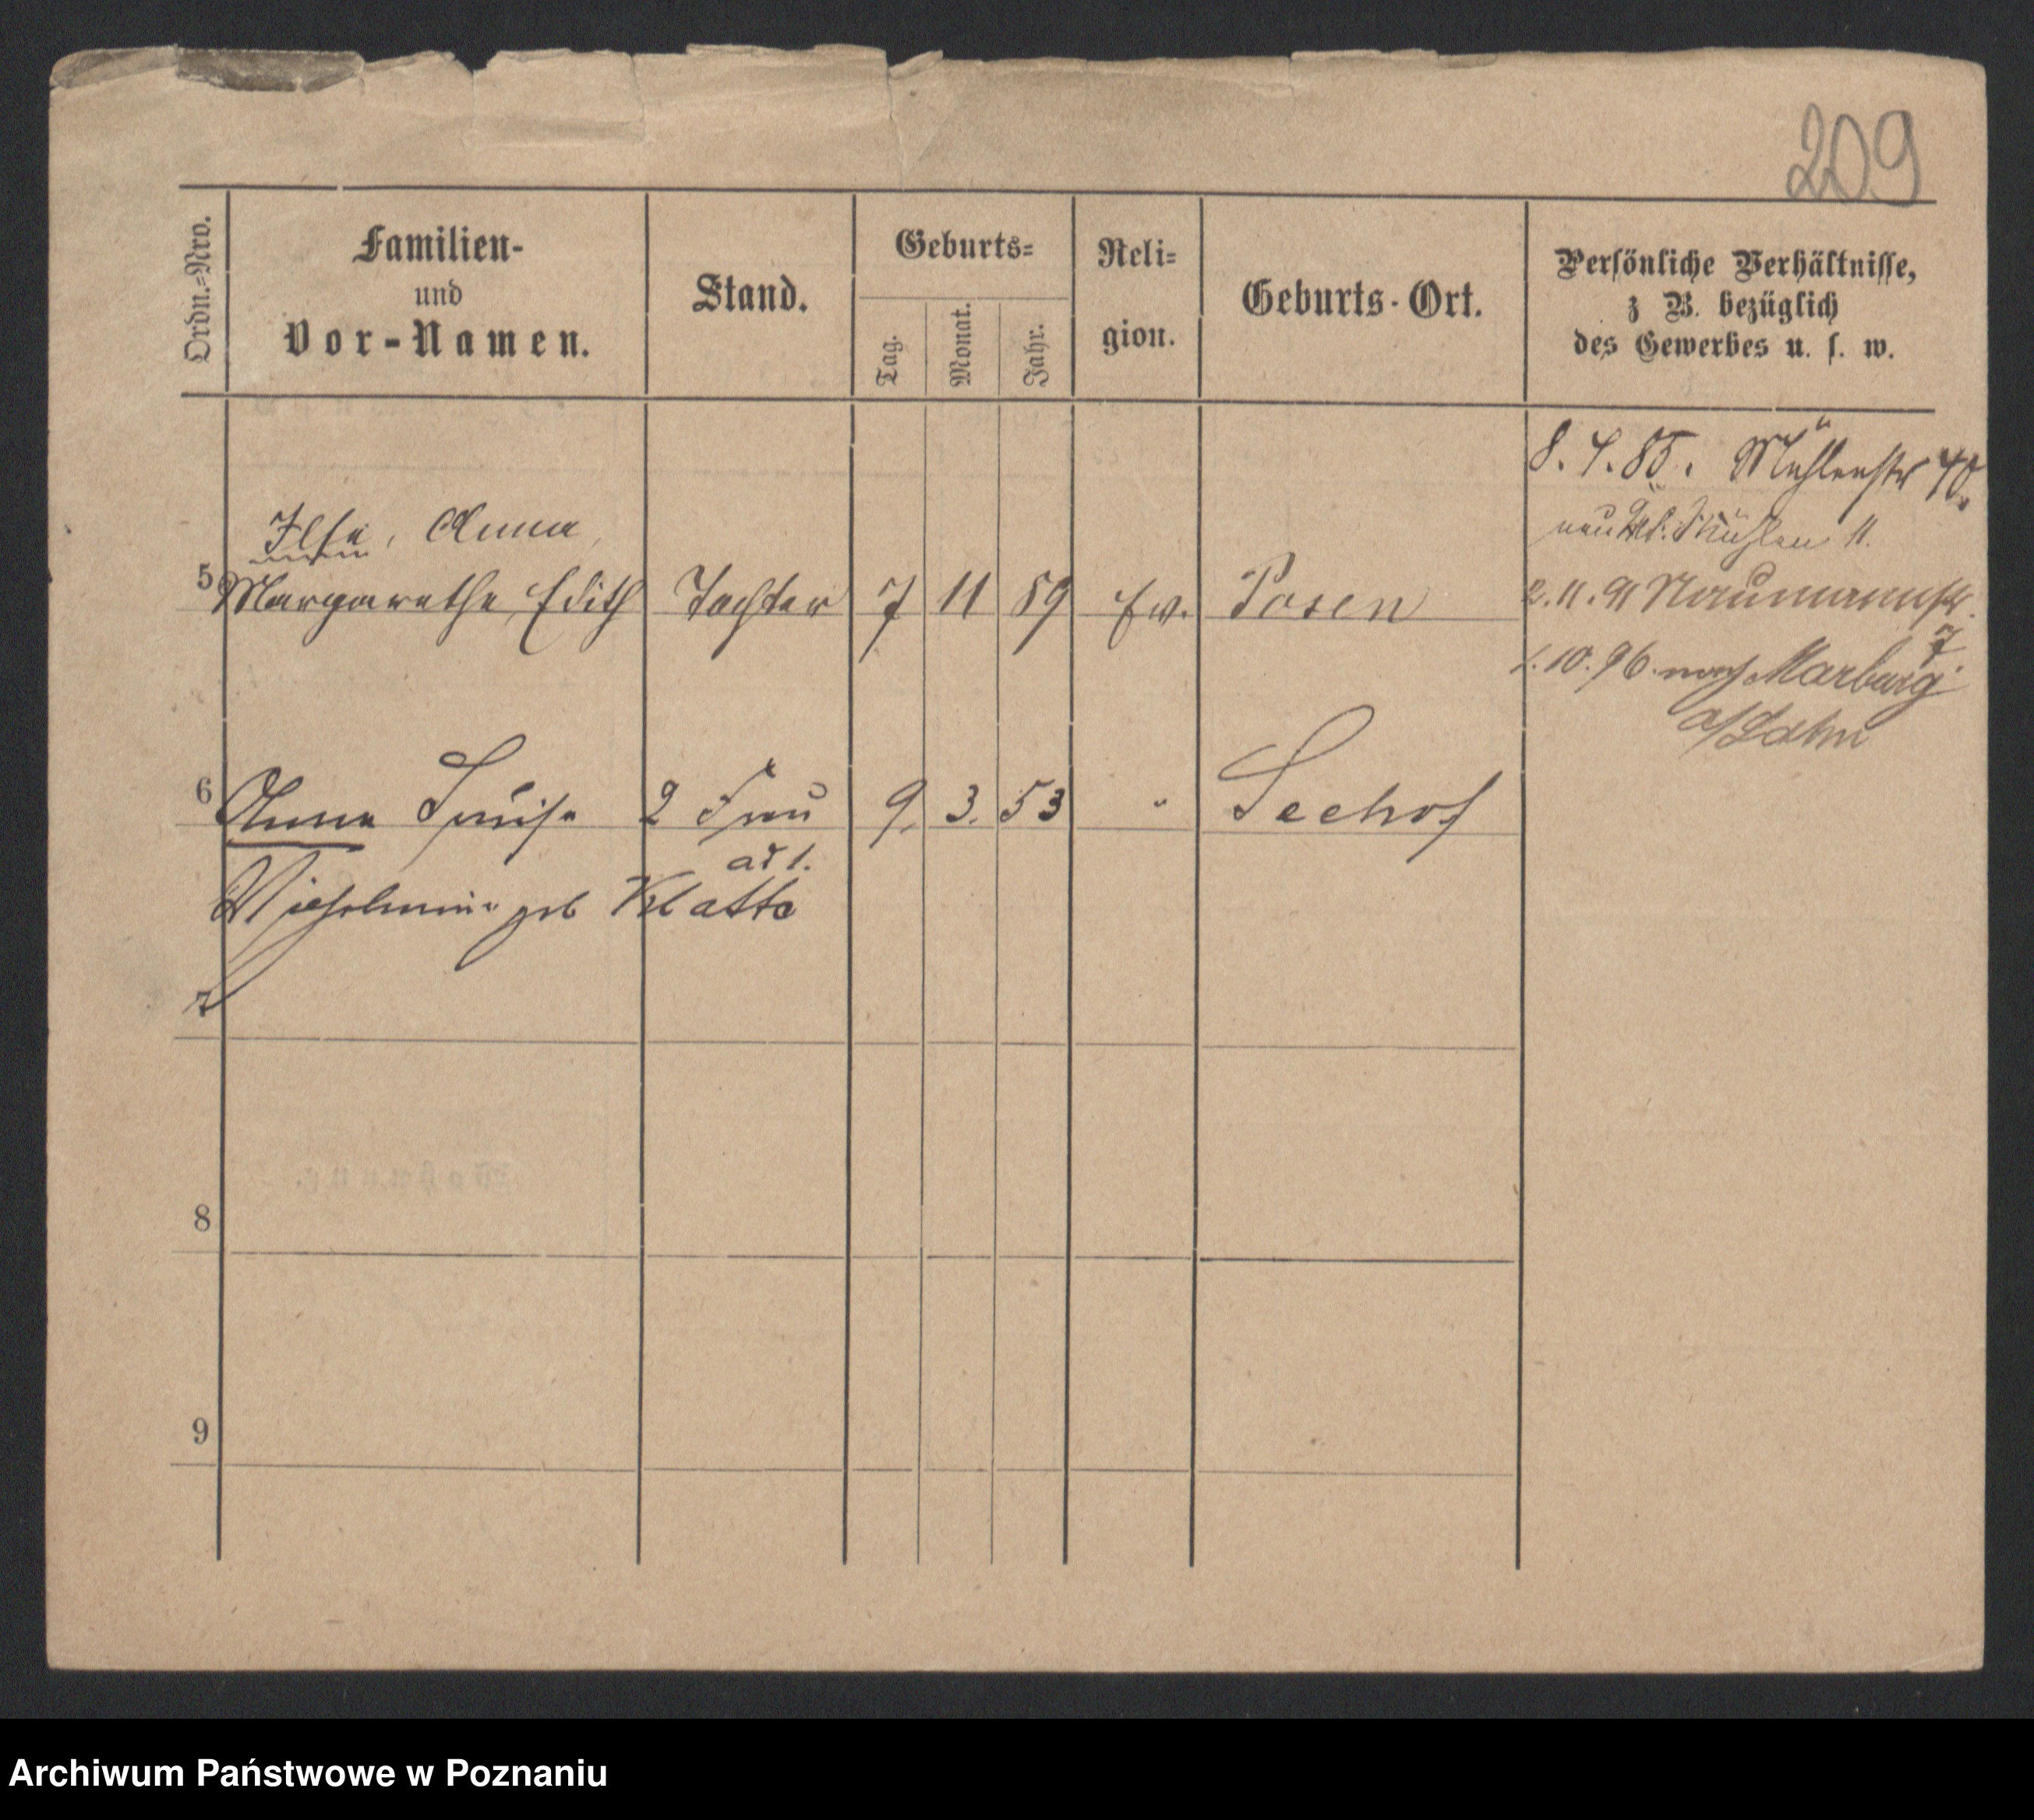 209
Ordn.-Nro.
Familien-
und
Vor-Namen.
Stand.
Geburts-
Tag.
Monat.
Jahr.
Reli-
gion.
Geburts-Ort.
Persönliche Verhältnisse,
z B. bezüglich
des Gewerbes u. s. w.
8. 4. 85. Mühlenstr 40.
neu Mühlen 11.
2. 11. 91 Naumannstr.
7
1. 10. 96. nach Marburg
a/Lahn
Ilse, Anna,
5 Margarethe Edith Tochter 7 11 89 Ev. Posen
6 Anna Luise 2 Frau 9. 3. 53 " Seehof
ad 1.
Wilhelmine geb Klatte
7
8
9
Archiwum Państwowe w Poznaniu